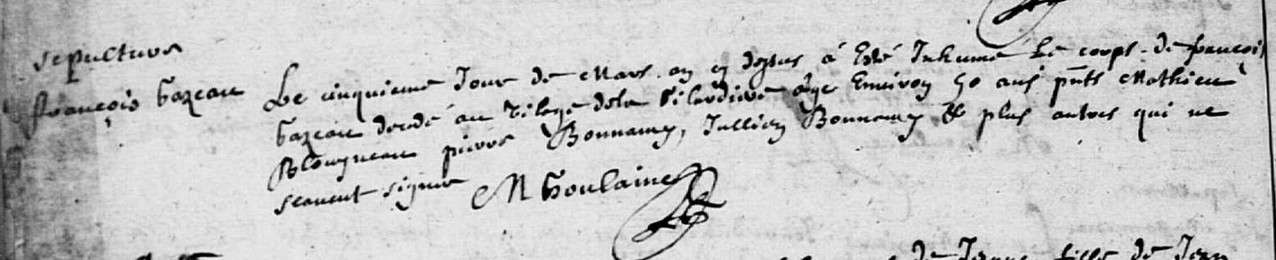 sepulture
françois bazeau
Le cinquieme Jour de Mars an cy desus à Esté Inhumé Le corps de françois
bazeau decedé au vilage de la agé Environ 50 ans pnts Mathieu
pierre Bonnamy, Jullien Bonnamy & plus autres qui ne
scavent signer M Goulaine
de Jeanne fille de Jean